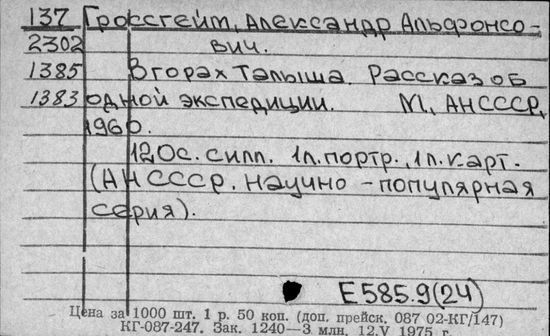 137 Гроссгейт, Александр Альфонсо-
2302 вич.
1385 В горах Талыша. Рассказ об
1383 одной экспедиции. М., АНСССР,
1960.
120с. силл. 1л.портр., 1л.карт.
(АН СССР. научно - популярная
серия).
Е585.9(24)
Цена за 1000 шт. 1 р. 50 коп. (доп. прейск. 087 02-КГ/147)
КГ-087-247. Зак. 1240—3 млн. 12.V 1975 г.